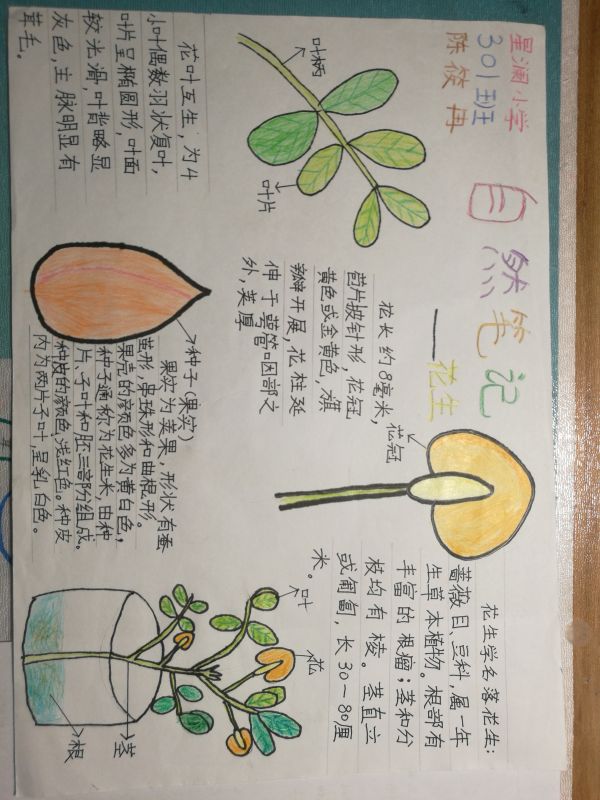 星澜小学
301班
陈筱冉
自然笔记
——花生
叶柄
叶片
花叶互生，为4
小叶偶数羽状复叶，
叶片呈椭圆形，叶面
较光滑，叶背略显
灰色，主脉明显有
茸毛。
花长约8毫米，
苞片披针形，花冠
黄色或金黄色，旗
瓣开展，花柱延
伸于萼管咽部之
外，荚厚
花冠
种子(果实)
果实为荚果，形状有蚕
茧形，串珠形和曲棍形。
果壳的颜色多为黄白色，
种子通称为花生米，由种
片、子叶和胚三部分组成。
种皮的颜色浅红色。种皮
内为两片子叶，呈乳白色。
花生学名落花生：
蔷薇目、豆科，属一年
生草本植物。根部有
丰富的根瘤；茎和分
枝均有棱。茎直立
或匍匐，长30-80厘
米。
叶
花
茎
根